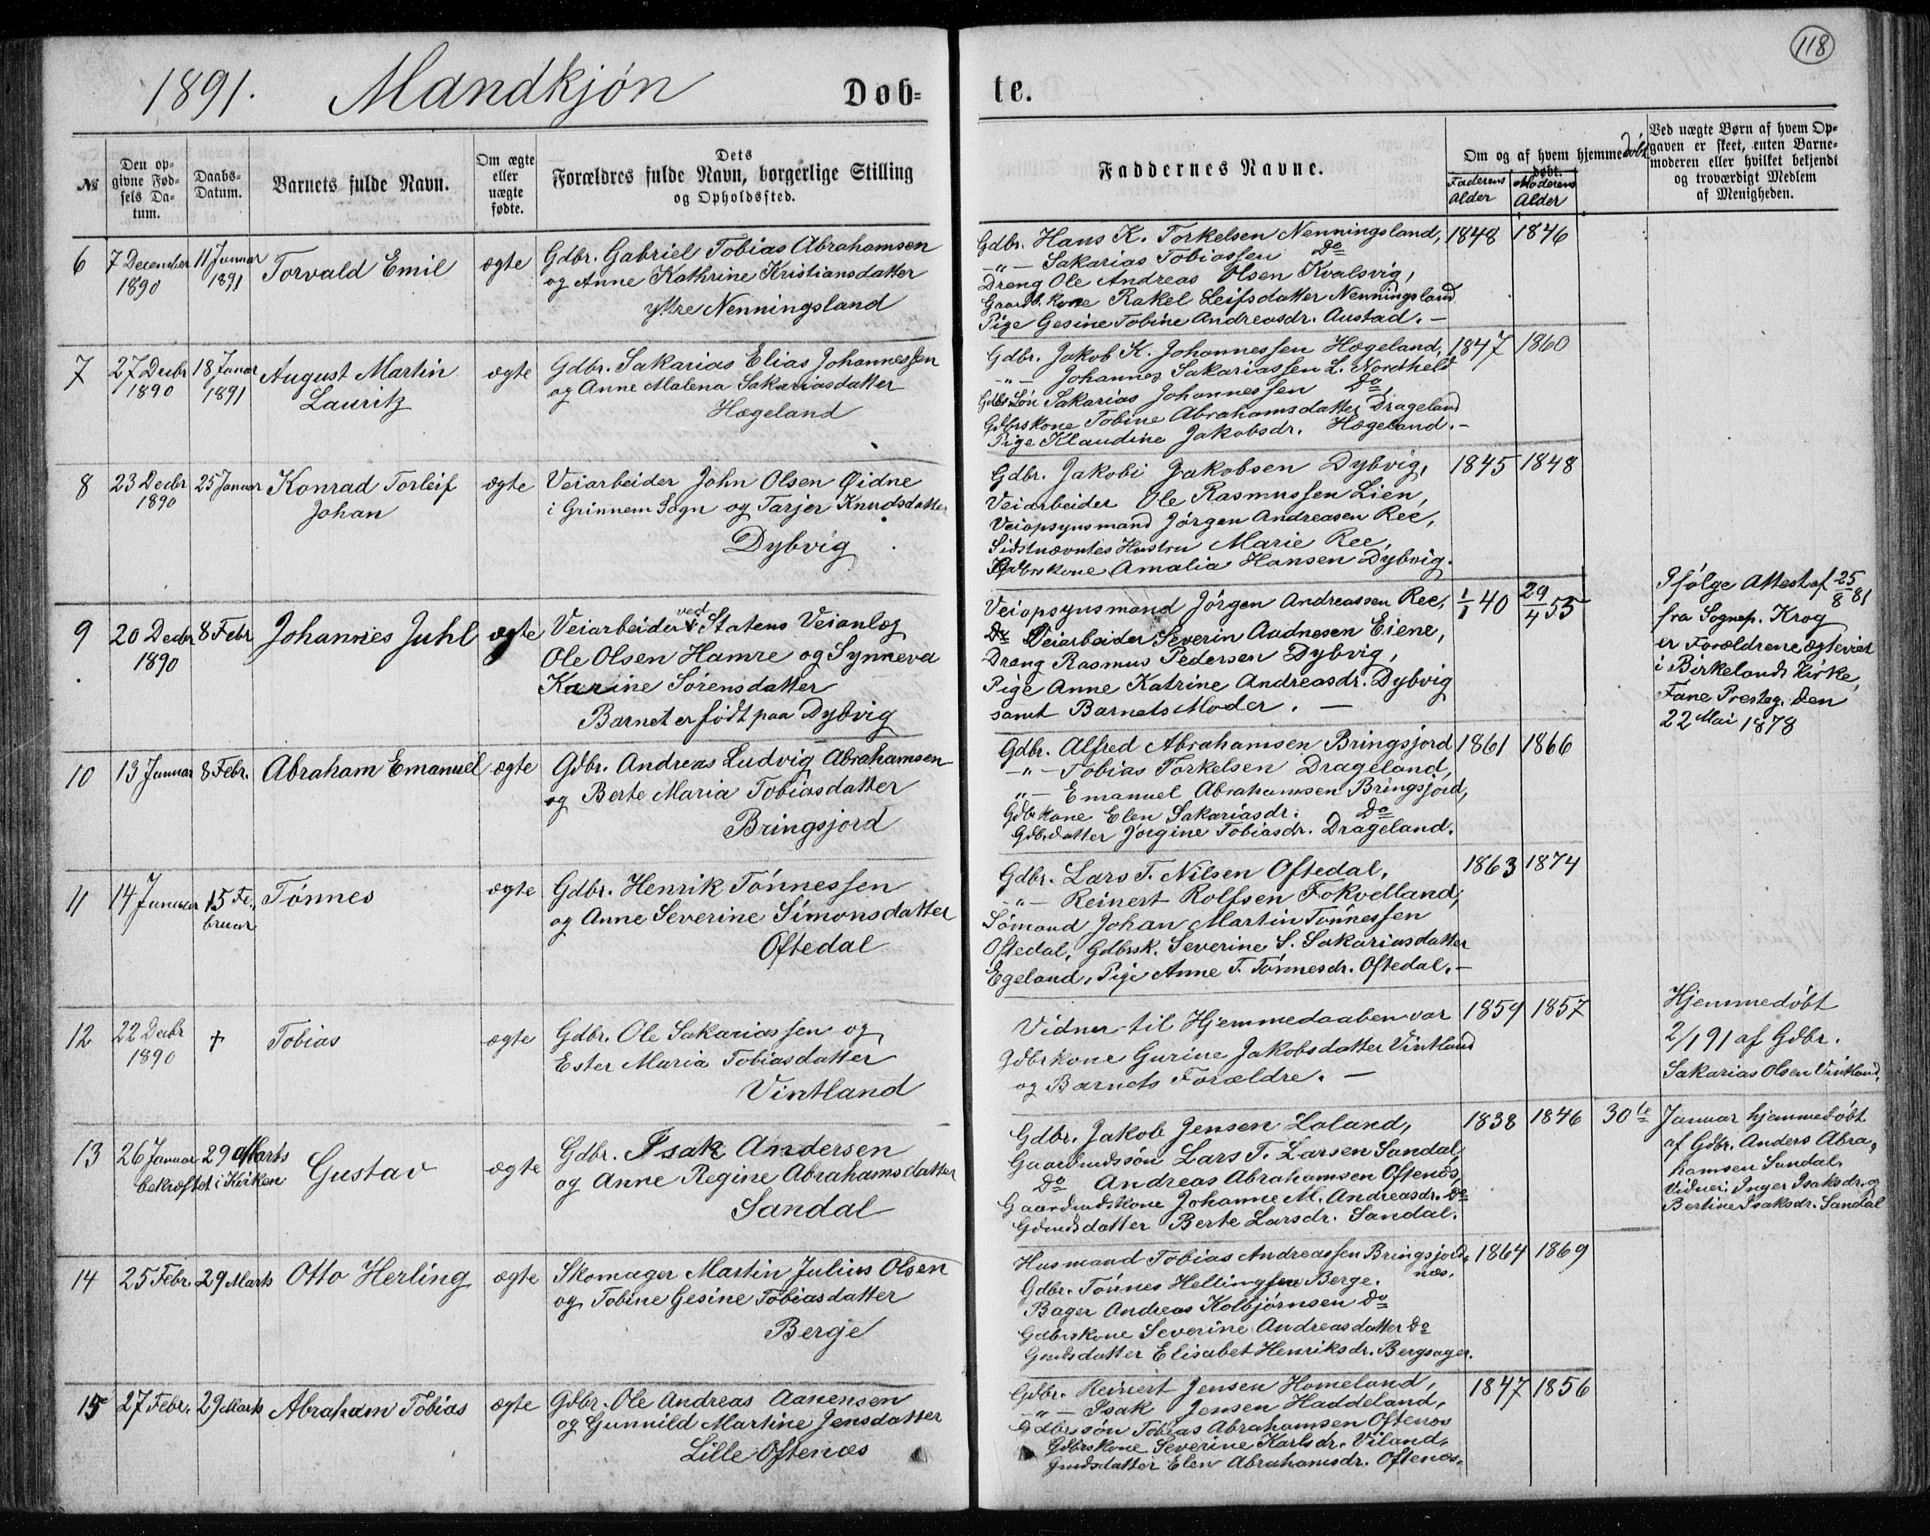 118
1891. Mandkjøn Døb-
te.
№
Den op-
givne Fød-
sels Da-
tum.
Daabs-
Datum.
Barnets fulde Navn.
Om ægte
eller
uægte
fødte.
Dets
Forældres fulde Navn, borgerlige Stilling
og Opholdssted.
Faddernes Navne.
Om og af hvem hjemmedøbt
døbt.
Faderens
Alder
Moderens
Alder
Ved uægte Børn af hvem Op-
gaven er skeet, enten Barne-
moderen eller hvilket bekjendt
og troværdigt Medlem
af Menigheden.
6
7 December
1890
11 Januar
1891
Torvald Emil
ægte
Gdbr. Gabriel Tobias Abrahamsen
og Anne Kathrine Kristiansdatter
ytre Nenningsland
Gdbr. Hans K. Torkelsen Nenningsland,
-"- Sakarias Tobiassen Do
Dreng Ole Andreas Olsen Kvalsvig,
Gaardb. kone Rakel Leifsdatter Nenningsland
Pige Gesine Tobine Andreasdr. Austad. -
1848
1846
7
27 Decbr
1890
18 Januar
1891
August Martin
Lauritz
ægte
Gdbr. Sakarias Elias Johannessen
og Anne Malena Sakariasdatter
Hægeland
Gdbr. Jakob K. Johannessen Hægeland,
-"- Johannes Sakariassen L. Nordhelt
Gdbr Søn Sakarias Johannessen Do,
Gdbrskone Tobine Abrahamsdatter Drageland
Pige Klaudine Jakobsdr. Hægeland. -
1847
1860
8
23 Decbr
1890
25 Januar
Konrad Torleif
Johan
ægte
Veiarbeider John Olsen Øidne
i Grinnem Sogn og Tarjer Knudsdatter
Dybvig
Gdbr. Jakobi Jakobsen Dybvig,
Veiarbeider Ole Rasmussen Lien,
Veiopsynsmand Jørgen Andreasen Ree,
Sidstnævntes Hustru Marie Ree,
Gdbrskone Amalia Hansen Dybvig.
1845
1848
9
20 Decbr
1890
8 Febr
Johannes Juhl
ægte
Veiarbeider ved Statens Veianlæg
Ole Olsen Hamre og Synneva
Karine Sørensdatter
Barnet er født paa Dybvig
Veiopsynsmand Jørgen Andreassen Ree,
Do Veiarbeider Severin Audnesen Eiene,
Dreng Rasmus Pedersen Dybvig,
Pige Anne Katrine Andreasdr. Dybvig
samt Barnets Moder. -
1/1 40
29/4 55
Ifølge Attest af 25/8 81
fra Sognep. Krog
er Forældrene ægteviet
i Birkelands Kirke,
Fane Presteg. den
22 Mai 1878
10
13 Januar
8 Febr.
Abraham Emanuel
ægte
Gdbr. Andreas Ludvig Abrahamsen
og Berte Maria Tobiasdatter
Bringsjord
Gdbr. Alfred Abrahamsen Bringsjord
-"- Tobias Torkelsen Drageland,
"- Emanuel Abrahamsen Bringsjord,
Gdbrkone Elen Sakariasdr. Do
Gdbrdatter Jørgine Tobiasdr. Drageland.
1861
1866
11
14 Januar
15 Fe-
bruar
Tønnes
ægte
Gdbr. Henrik Tønnessen
og Anne Severine Simonsdatter
Oftedal
Gdbr. Lars T. Nilsen Oftedal,
-"- Reinert Rolfsen Fokvelland,
Sømand Johan Martin Tønnessen
Oftedal, Gdbrsk. Severine S. Sakariasdatter
Egeland, Pige Anne T. Tønnesdr. Oftedal. -
1863
1874
12
22 Decbr
1890
+
Tobias
ægte
Gdbr. Ole Sakariassen og
Ester Maria Tobiasdatter
Vintland
Vidner til Hjemmedaaben var
Gdbrkone Gurine Jakobsdatter Vintland
og Barnets Forældre. -
1859
1857
Hjemmedøbt
2/1 91 af Gdbr.
Sakarias Olsen Vintland.
13
26 Januar
29 Marts
bekræftet i Kirken
Gustav
ægte
Gdbr. Isak Andersen
og Anne Regine Abrahamsdatter
Sandal
Gdbr. Jakob Jensen Laland,
Gaardmdssøn Lars T. Larsen Sandal,
Do Andreas Abrahamsen Oftenæs,
Gaardmdskone Johanne M. Andreasdr. Do
Gdmdsdatter Berte Larsdr. Sandal.
1838
1846
30te
Januar hjemmedøbt
af Gdbr. Anders Abra-
hamsen Sandal.
Vidner: Inger Isaksdr. og
Bertine Isaksdr. Sandal
14
25 Febr.
29 Marts
Otto Herling
ægte
Skomager Martin Julius Olsen
og Tobine Gesine Tobiasdatter
Berge
Husmand Tobias Andreassen Bringsjords
næs.
Gdbr. Tønnes Hellingsen Berge.
Bager Andreas Kolbjørnsen Do
Gdbrskone Severine Andreasdatter Do
Gmdsdatter Elisabet Henriksdr. Bergsager.
1864
1869
15
27 Febr.
29 Marts
Abraham Tobias
ægte
Gdbr. Ole Andreas Aanensen
og Gunnild Martine Jensdatter
Lille Oftenæs
Gdbr. Reinert Jensen Homeland,
-"- Isak Jensen Haddeland,
Gdbrsøn Tobias Abrahamsen Oftenæs
Gdbrskone Severine Karlsdr. Viland,
Gmdsdatter Elen Abrahamsdr. Oftenæs.
1847
1856